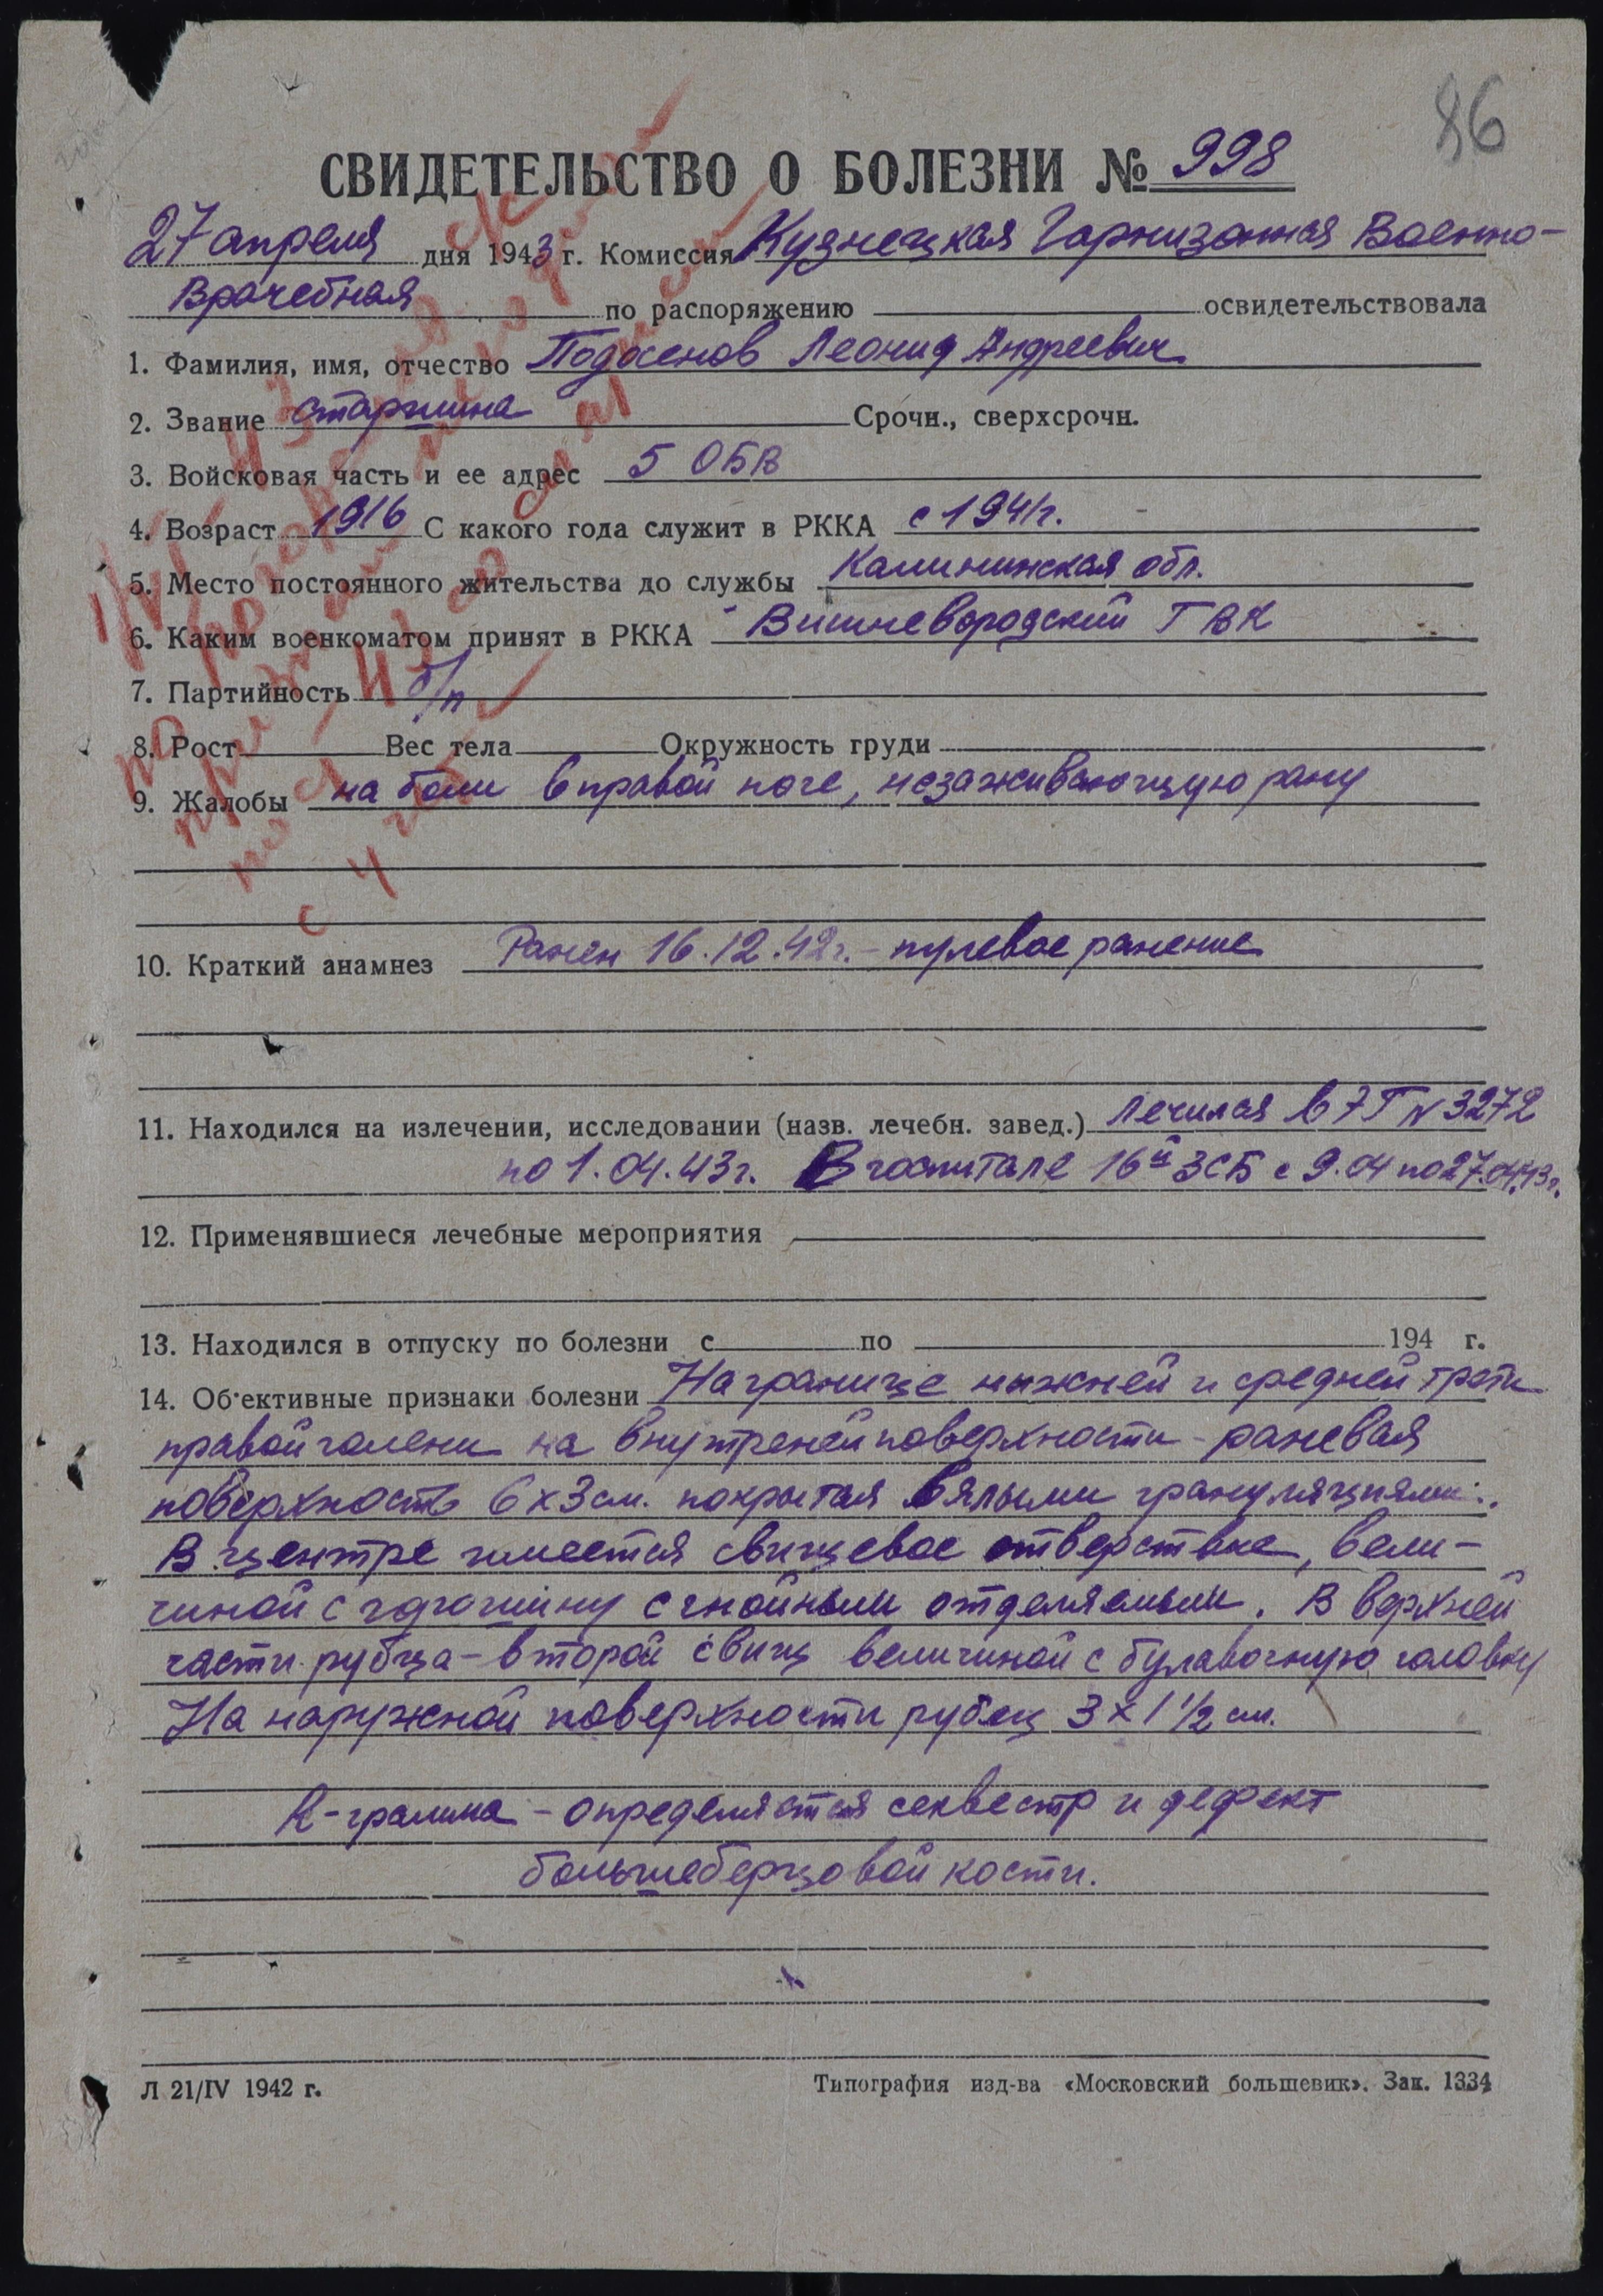 86
СВИДЕТЕЛЬСТВО О БОЛЕЗНИ № 998
27 апреля дня 1943 г. Комиссия Кузнецкая Гарнизонная Военно-
Врачебная по распоряжению освидетельствовала
1. Фамилия, имя, отчество Подосенов Леонид Андреевич
2. Звание старшина Срочн., сверхсрочн.
3. Войсковая часть и ее адрес 5 ОБВ
4. Возраст 1916 С какого года служит в РККА с 1941г.
5. Место постоянного жительства до службы Калининская обл.
6. Каким военкоматом принят в РККА ГВК
7. Партийность б/п
8. Рост Вес тела Окружность груди
9. Жалобы на боли в правой ноге, незаживающую рану
10. Краткий анамнез Ранен 16.12.42г. – пулевое ранение
11. Находился на излечении, исследовании (назв. лечебн. завед.) Лечился в ЭГ N 3272
по 1.04.43г. В госпитале 16й ЗСБ с 9.04 по 27.04.43г.
12. Применявшиеся лечебные мероприятия
13. Находился в отпуску по болезни с по 194 г.
14. Об'ективные признаки болезни На границе нижней и средней трети
правой голени на внутреней поверхности – раневая
поверхность 6х3 см. покрытая вялыми грануляциями.
В центре имеется свищевое отверствие, вели-
чиной с горошину с гнойным отделяемым. В верхней
части рубца – второй свищ величиной с булавочную головку
На наружной поверхности рубец 3 х 1 1/2 см.
R-грамма – определяется секвестр и дефект
большеберцовой кости.
Л 21/IV 1942 г.
Типография изд-ва «Московский большевик». Зак. 1334